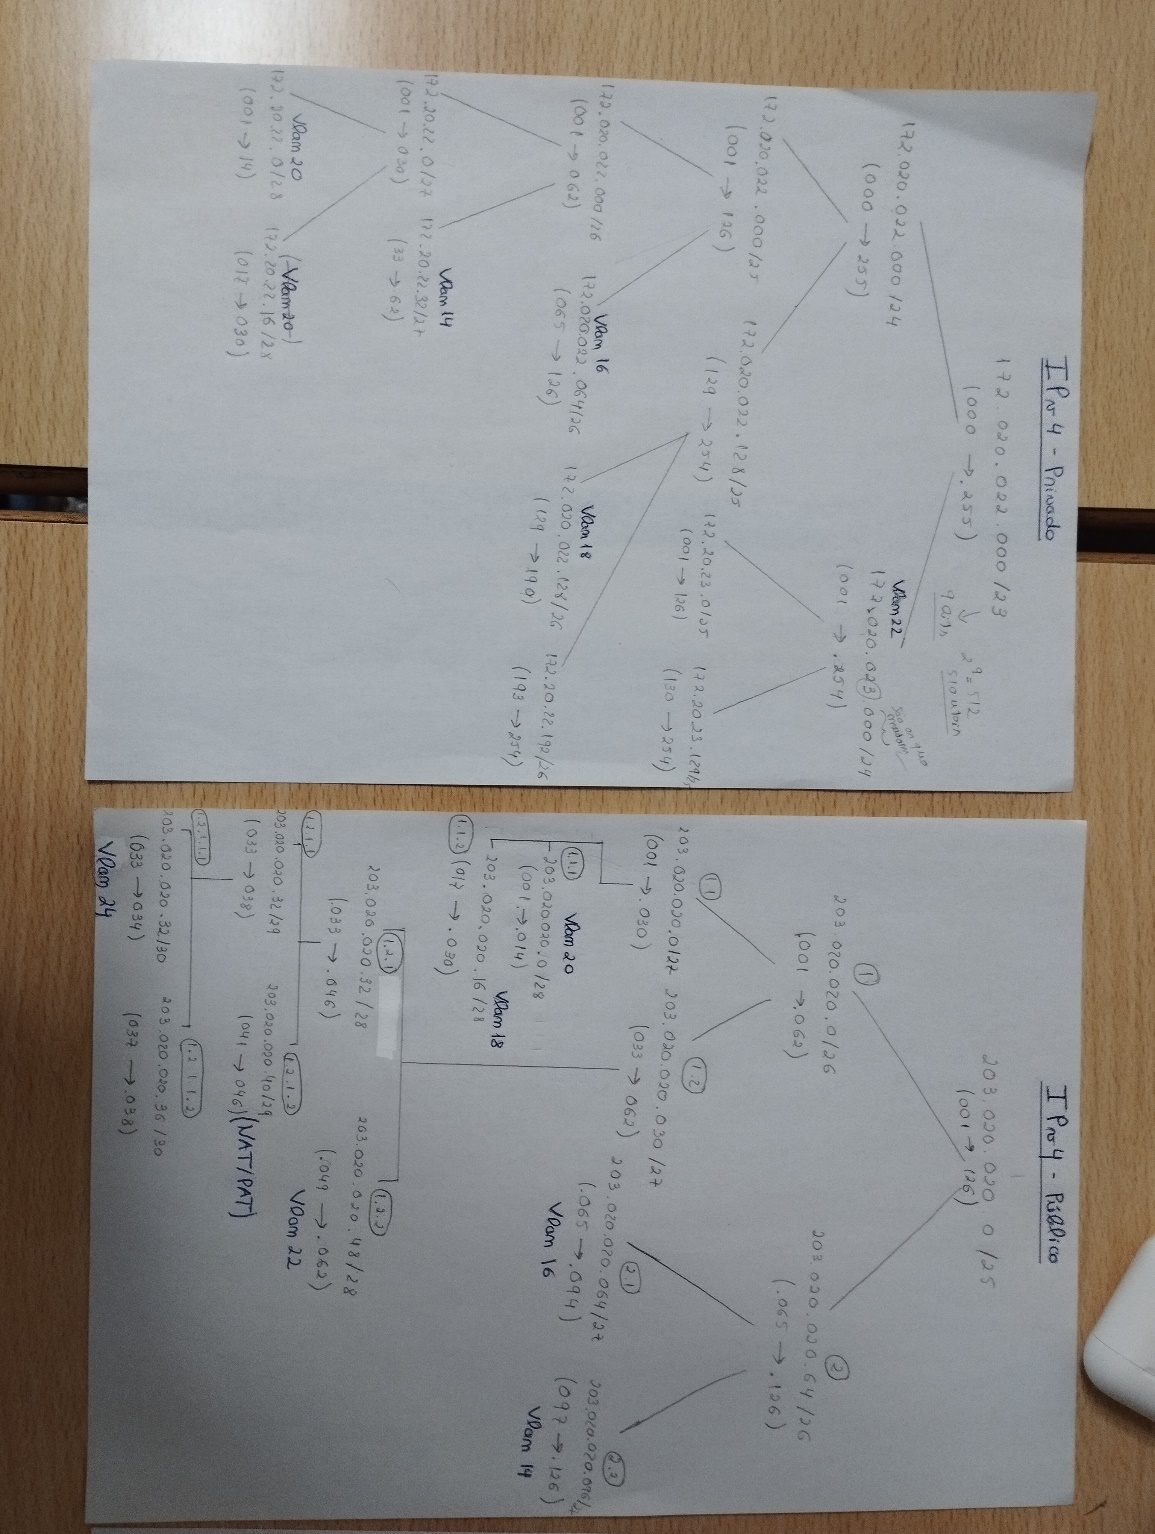 IPv4 - Privado
172.020.022.000/23
(000 → .255)
9 bits
2^9 = 512
510 uteis
172.020.022.000/24
(000 → 255)
Vlan 22
172.020.023.000/24
(001 → .254)
172.020.022.000/25
(001 → 126)
172.020.022.128/25
(129 → 254)
172.20.23.0/25
(001 → 126)
172.20.23.129/
(130 → 254)
172.020.022.000/26
(001 → 062)
Vlan 16
172.020.022.064/26
(065 → 126)
Vlan 18
172.020.022.128/26
(129 → 190)
172.20.22.192/26
(193 → 254)
172.20.22.0/27
(001 → 030)
Vlan 14
172.20.22.32/27
(33 → 62)
Vlan 20
172.20.22.0/28
(001 → 14)
(-Vlan 20-)
172.20.22.16/28
(017 → 030)
IPv4 - Público
203.020.020.0/25
(001 → 126)
1
203.020.020.0/26
(001 → 062)
2
203.020.020.64/26
(.065 → .126)
1.1
203.020.020.0/27
(001 → .030)
1.2
203.020.020.030/27
(033 → 062)
2.1
203.020.020.064/27
(.065 → .094)
Vlan 16
2.2
203.020.020.096/
(097 → .126)
Vlan 14
1.1.1
Vlan 20
203.020.020.0/28
(001 → .014)
Vlan 18
203.020.020.16/28
1.1.2
(017 → .030)
1.2.1
203.020.020.32/28
(.033 → .046)
1.2.2
203.020.020.48/28
(.049 → .062)
Vlan 22
1.2.1.1
203.020.020.32/29
(033 → 038)
1.2.1.2
203.020.020.40/29
(041 → 046) (NAT/PAT)
1.2.1.1.1
203.020.020.32/30
(033 → 034)
Vlan 24
1.2.1.1.2
203.020.020.36/30
(037 → .038)